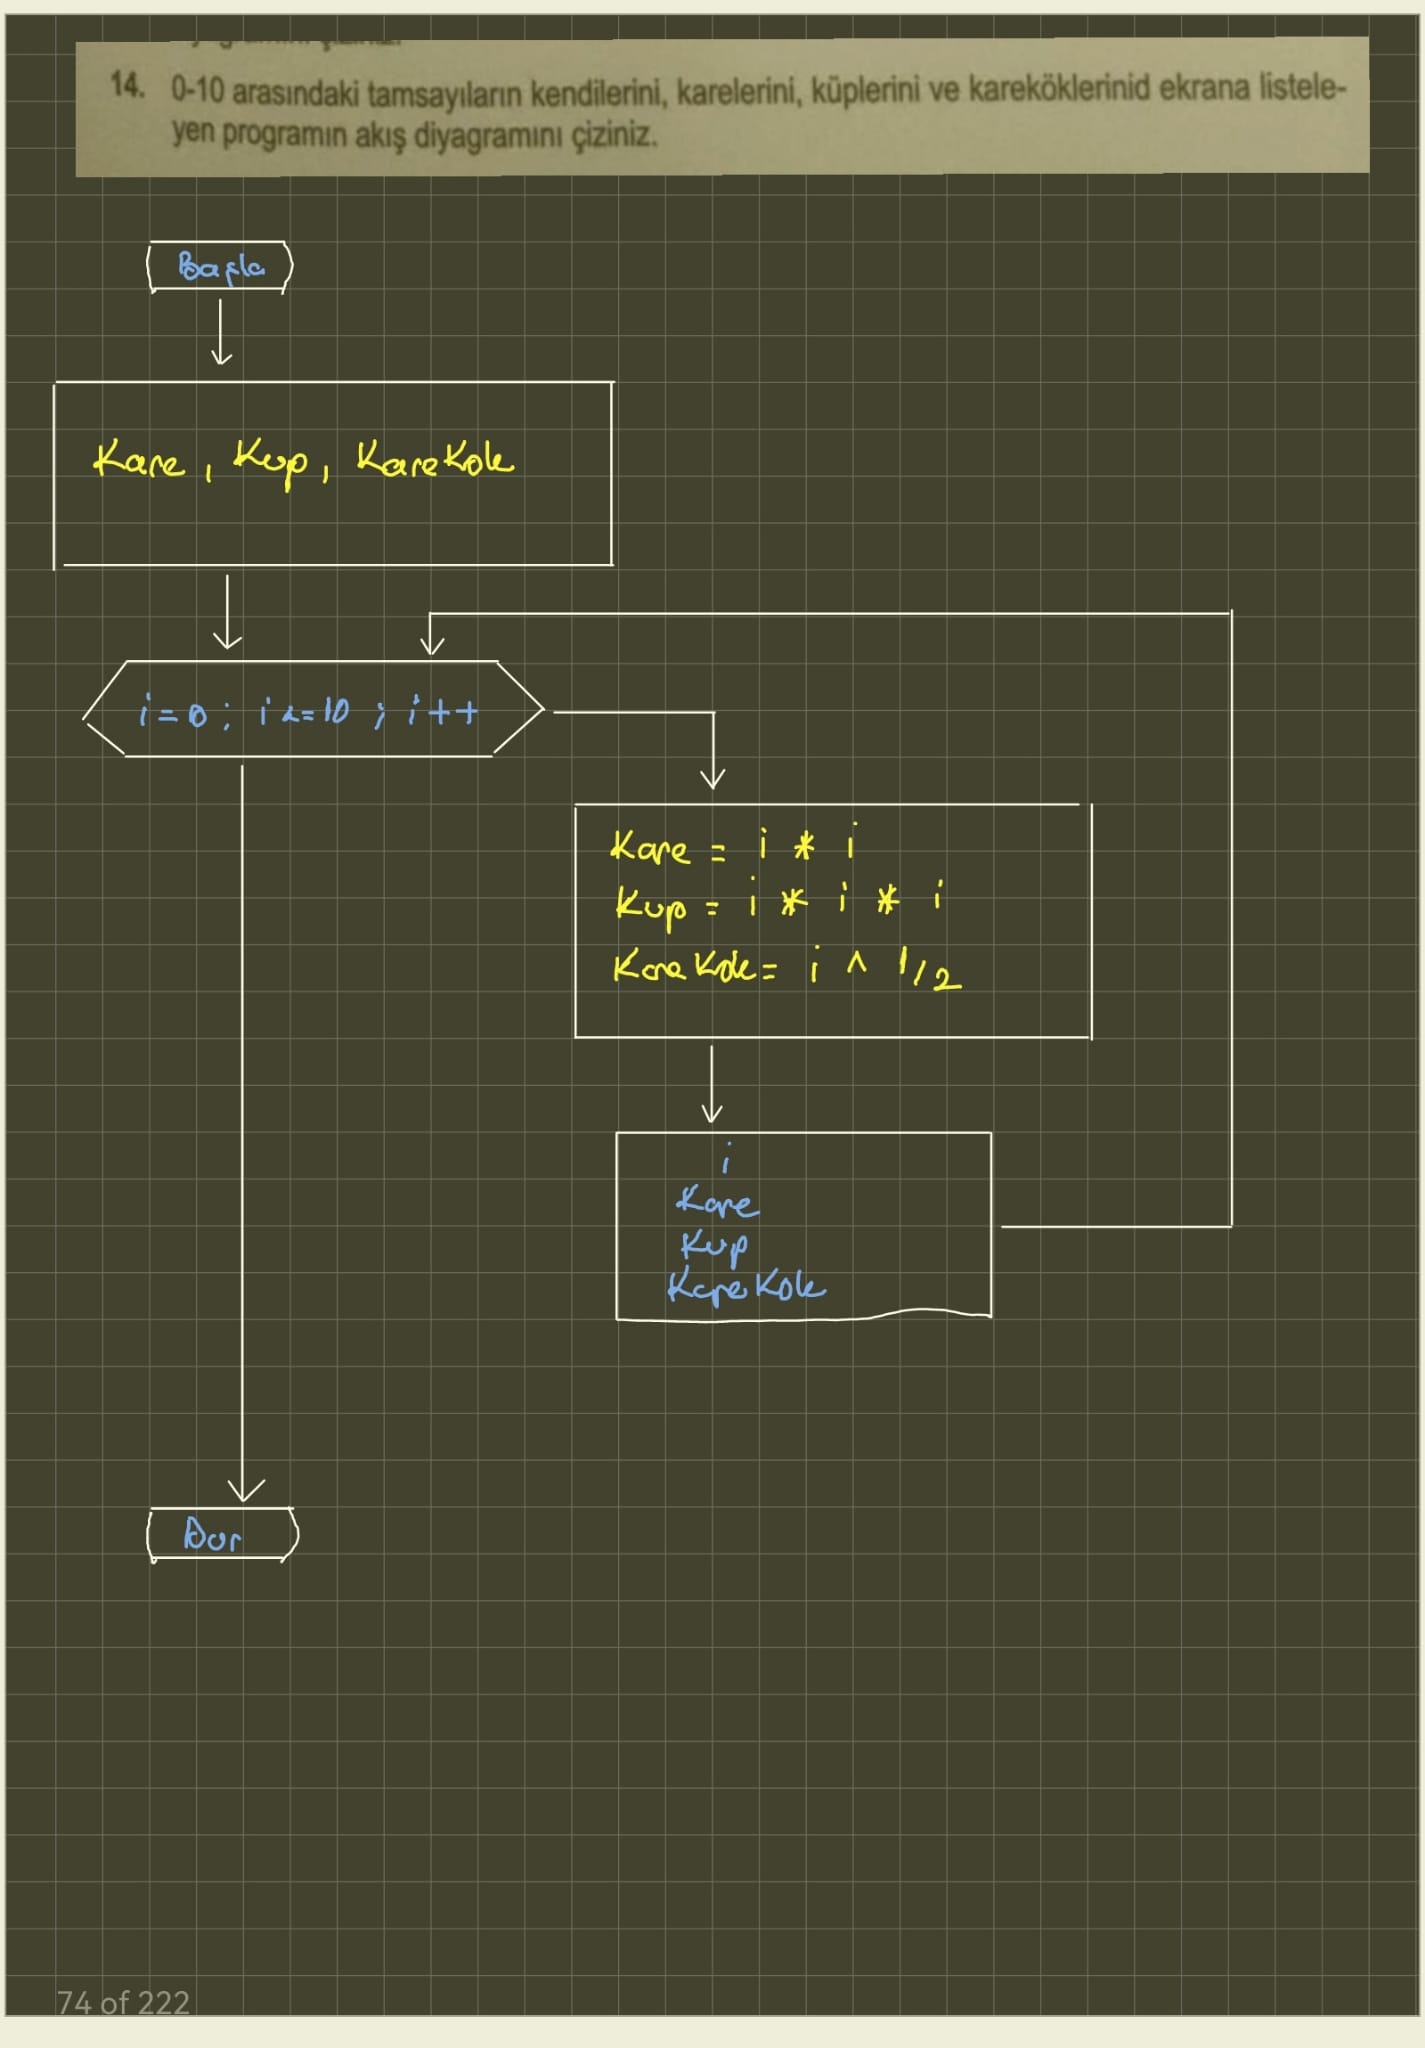 14. 0-10 arasındaki tamsayıların kendilerini, karelerini, küplerini ve kareköklerinid ekrana listele-
yen programın akış diyagramını çiziniz.
Başla
Kare, Kup, KareKok
i=0; i<=10; i++
Kare = i * i
Kup = i * i * i
KareKok = i ^ 1/2
i
Kare
Kup
KareKok
Dur
74 of 222